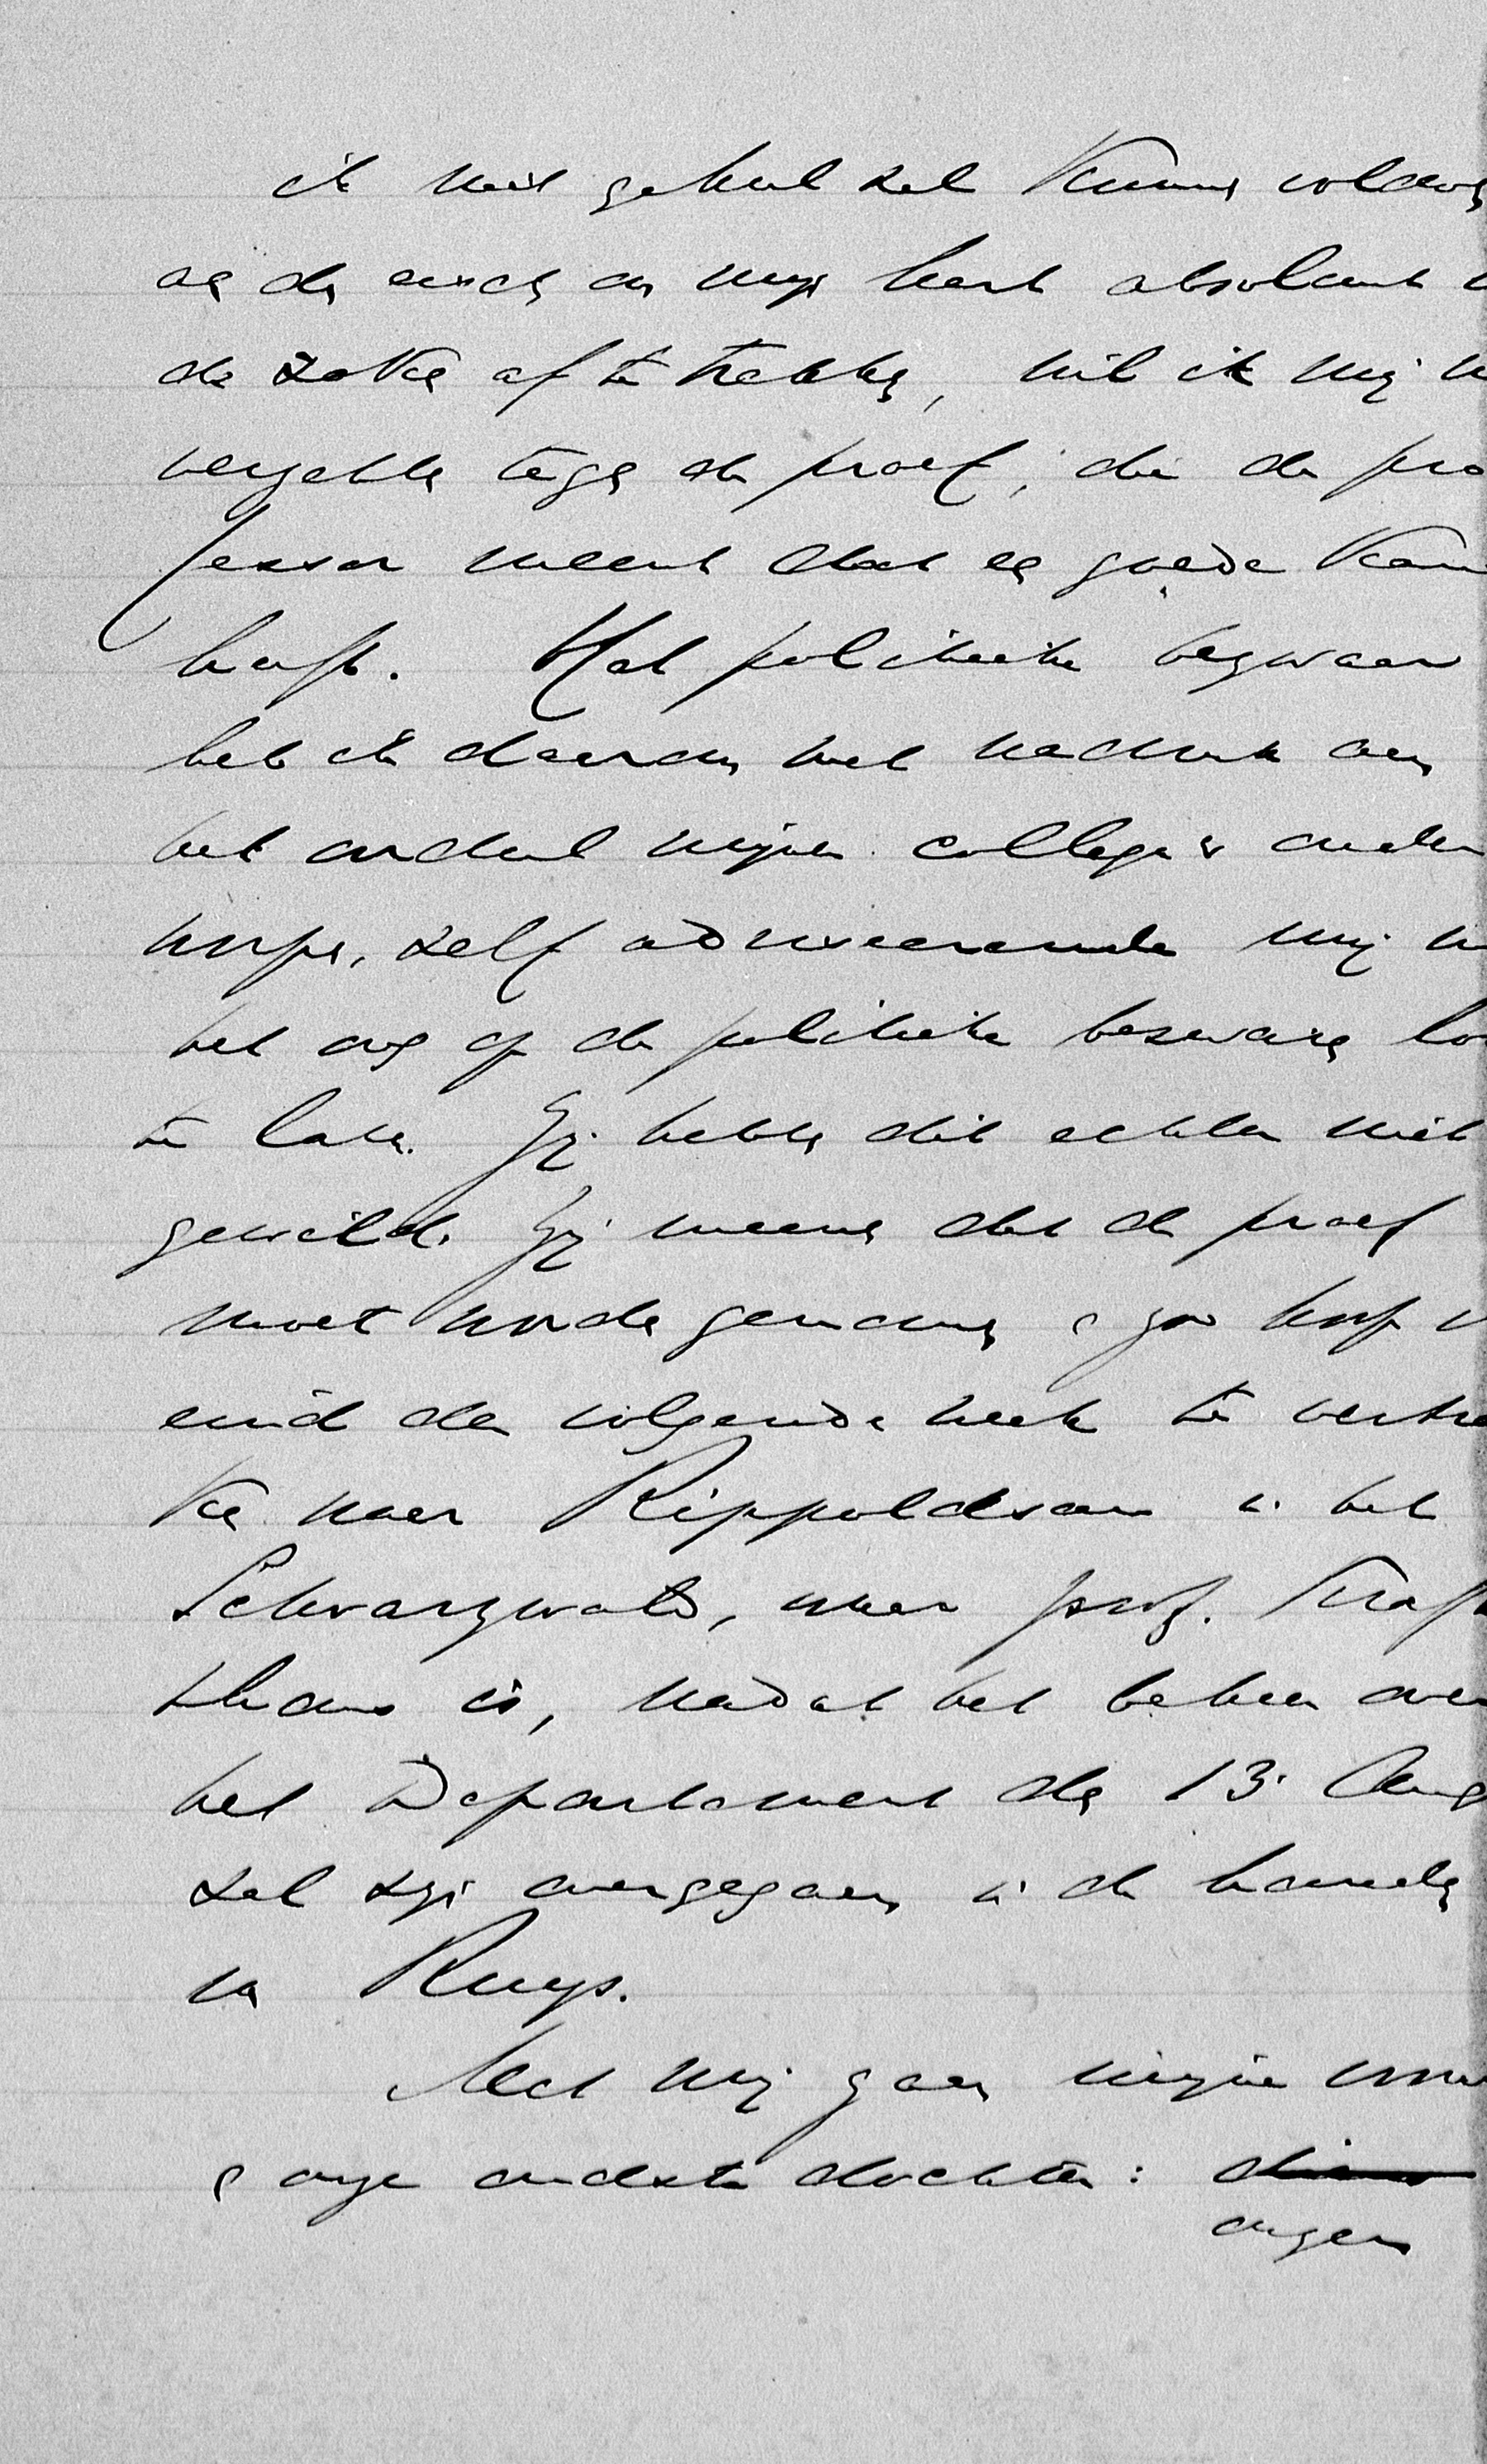 ik niet geheel zal kunnen voldoen
aan den eisch om mijn hart absoluut
de zaken af te trekken, wil ik mij
verzetten tegen de proef, die de pro
fessor meent dat een goede kans
heeft. Het politieke bezwaar
heb ik daarom met nadruk aan
het oordeel mijner collega's onder
worpen, zelf adviseerende mij
het oog op de politieke bezwaren los
te laten. Zij hebben dit echter niet
gewild. Zij meenen dat de proef
moet worden genomen en zoo hoop
eind der volgende week te vertrek
ken naar Rippoldsau in het
Schwarzwald, waar prof.
thans is, nadat het beheer over
het Departement den 13 Aug
zal zijn overgegaan in de handen
van Ruys.
Met mij gaan mijne vrouw
en onze oudste dochter: